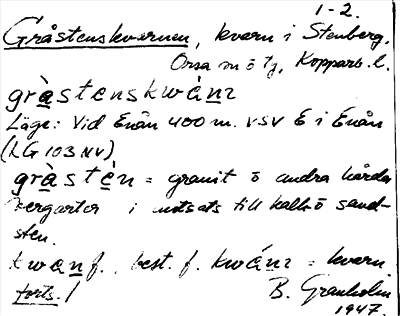 1-2.
Gråstenskvarnen, kvarn i Stenberg,
Orsa sn o tg, Kopparb. l.
gràstenskwánɪ
Läge: Vid Enån 400 m. VSV E i Enån
(LG 103 NV)
gràstèn = granit o andra hårda
bergarter i motsats till kalk o sand-
sten.
kwan f., best. f. kwánɪ = kvarn
forts. / B. Granholm
1947.